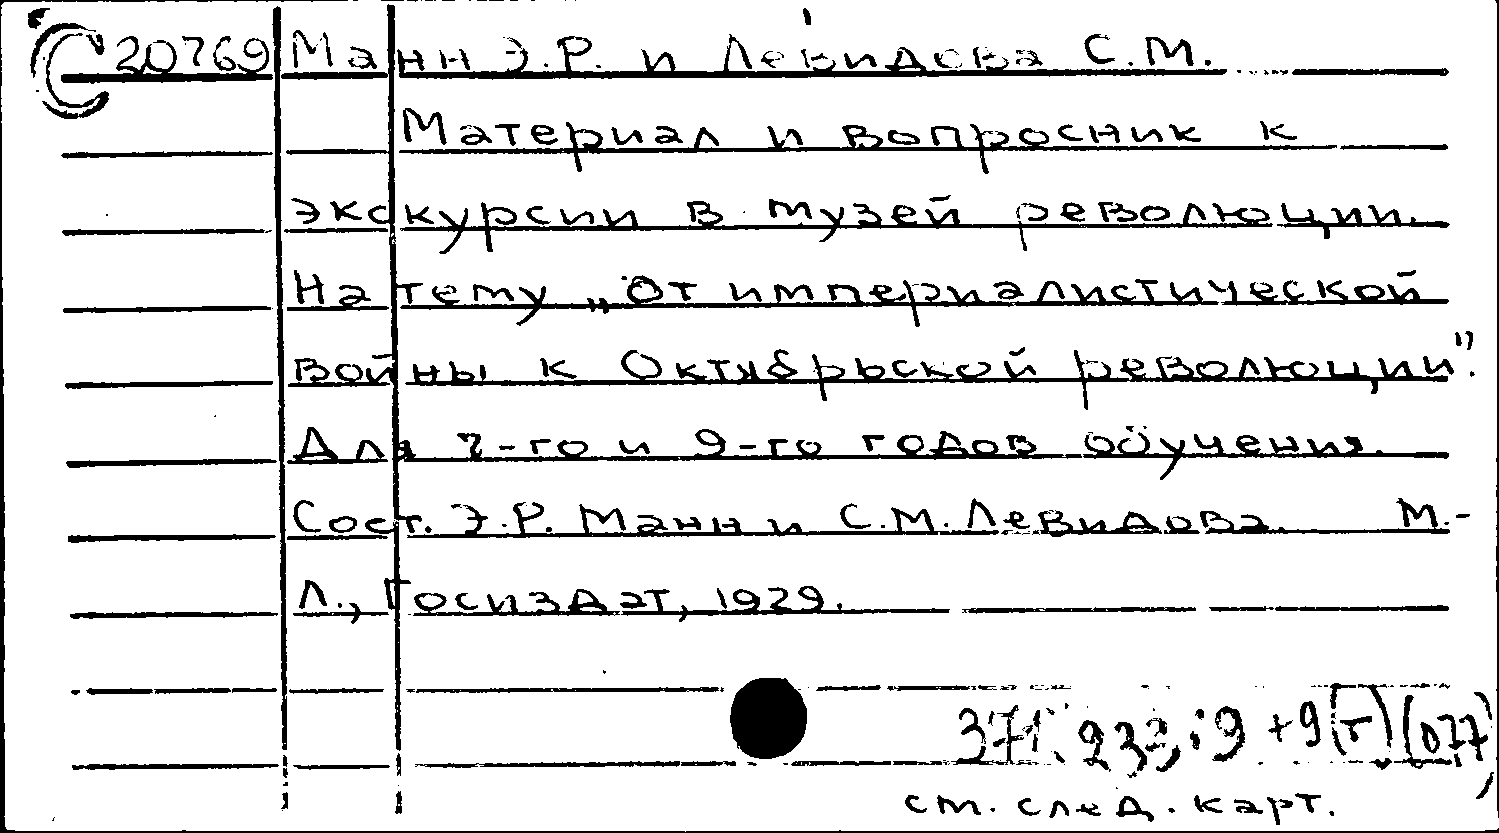 С 20769 Манн Э.Р. и Левидова С.М.
Материал и вопросник к
экскурсии в музей революции.
На тему „От империалистической
войны к Октябрьской революции".
Для 7-го и 9-го годов обучения.
Сост. Э.Р. Манн и С.М. Левидова. М.-
Л., Госиздат, 1929.
371.233:9 + 9(т)(077)
см. след. карт.